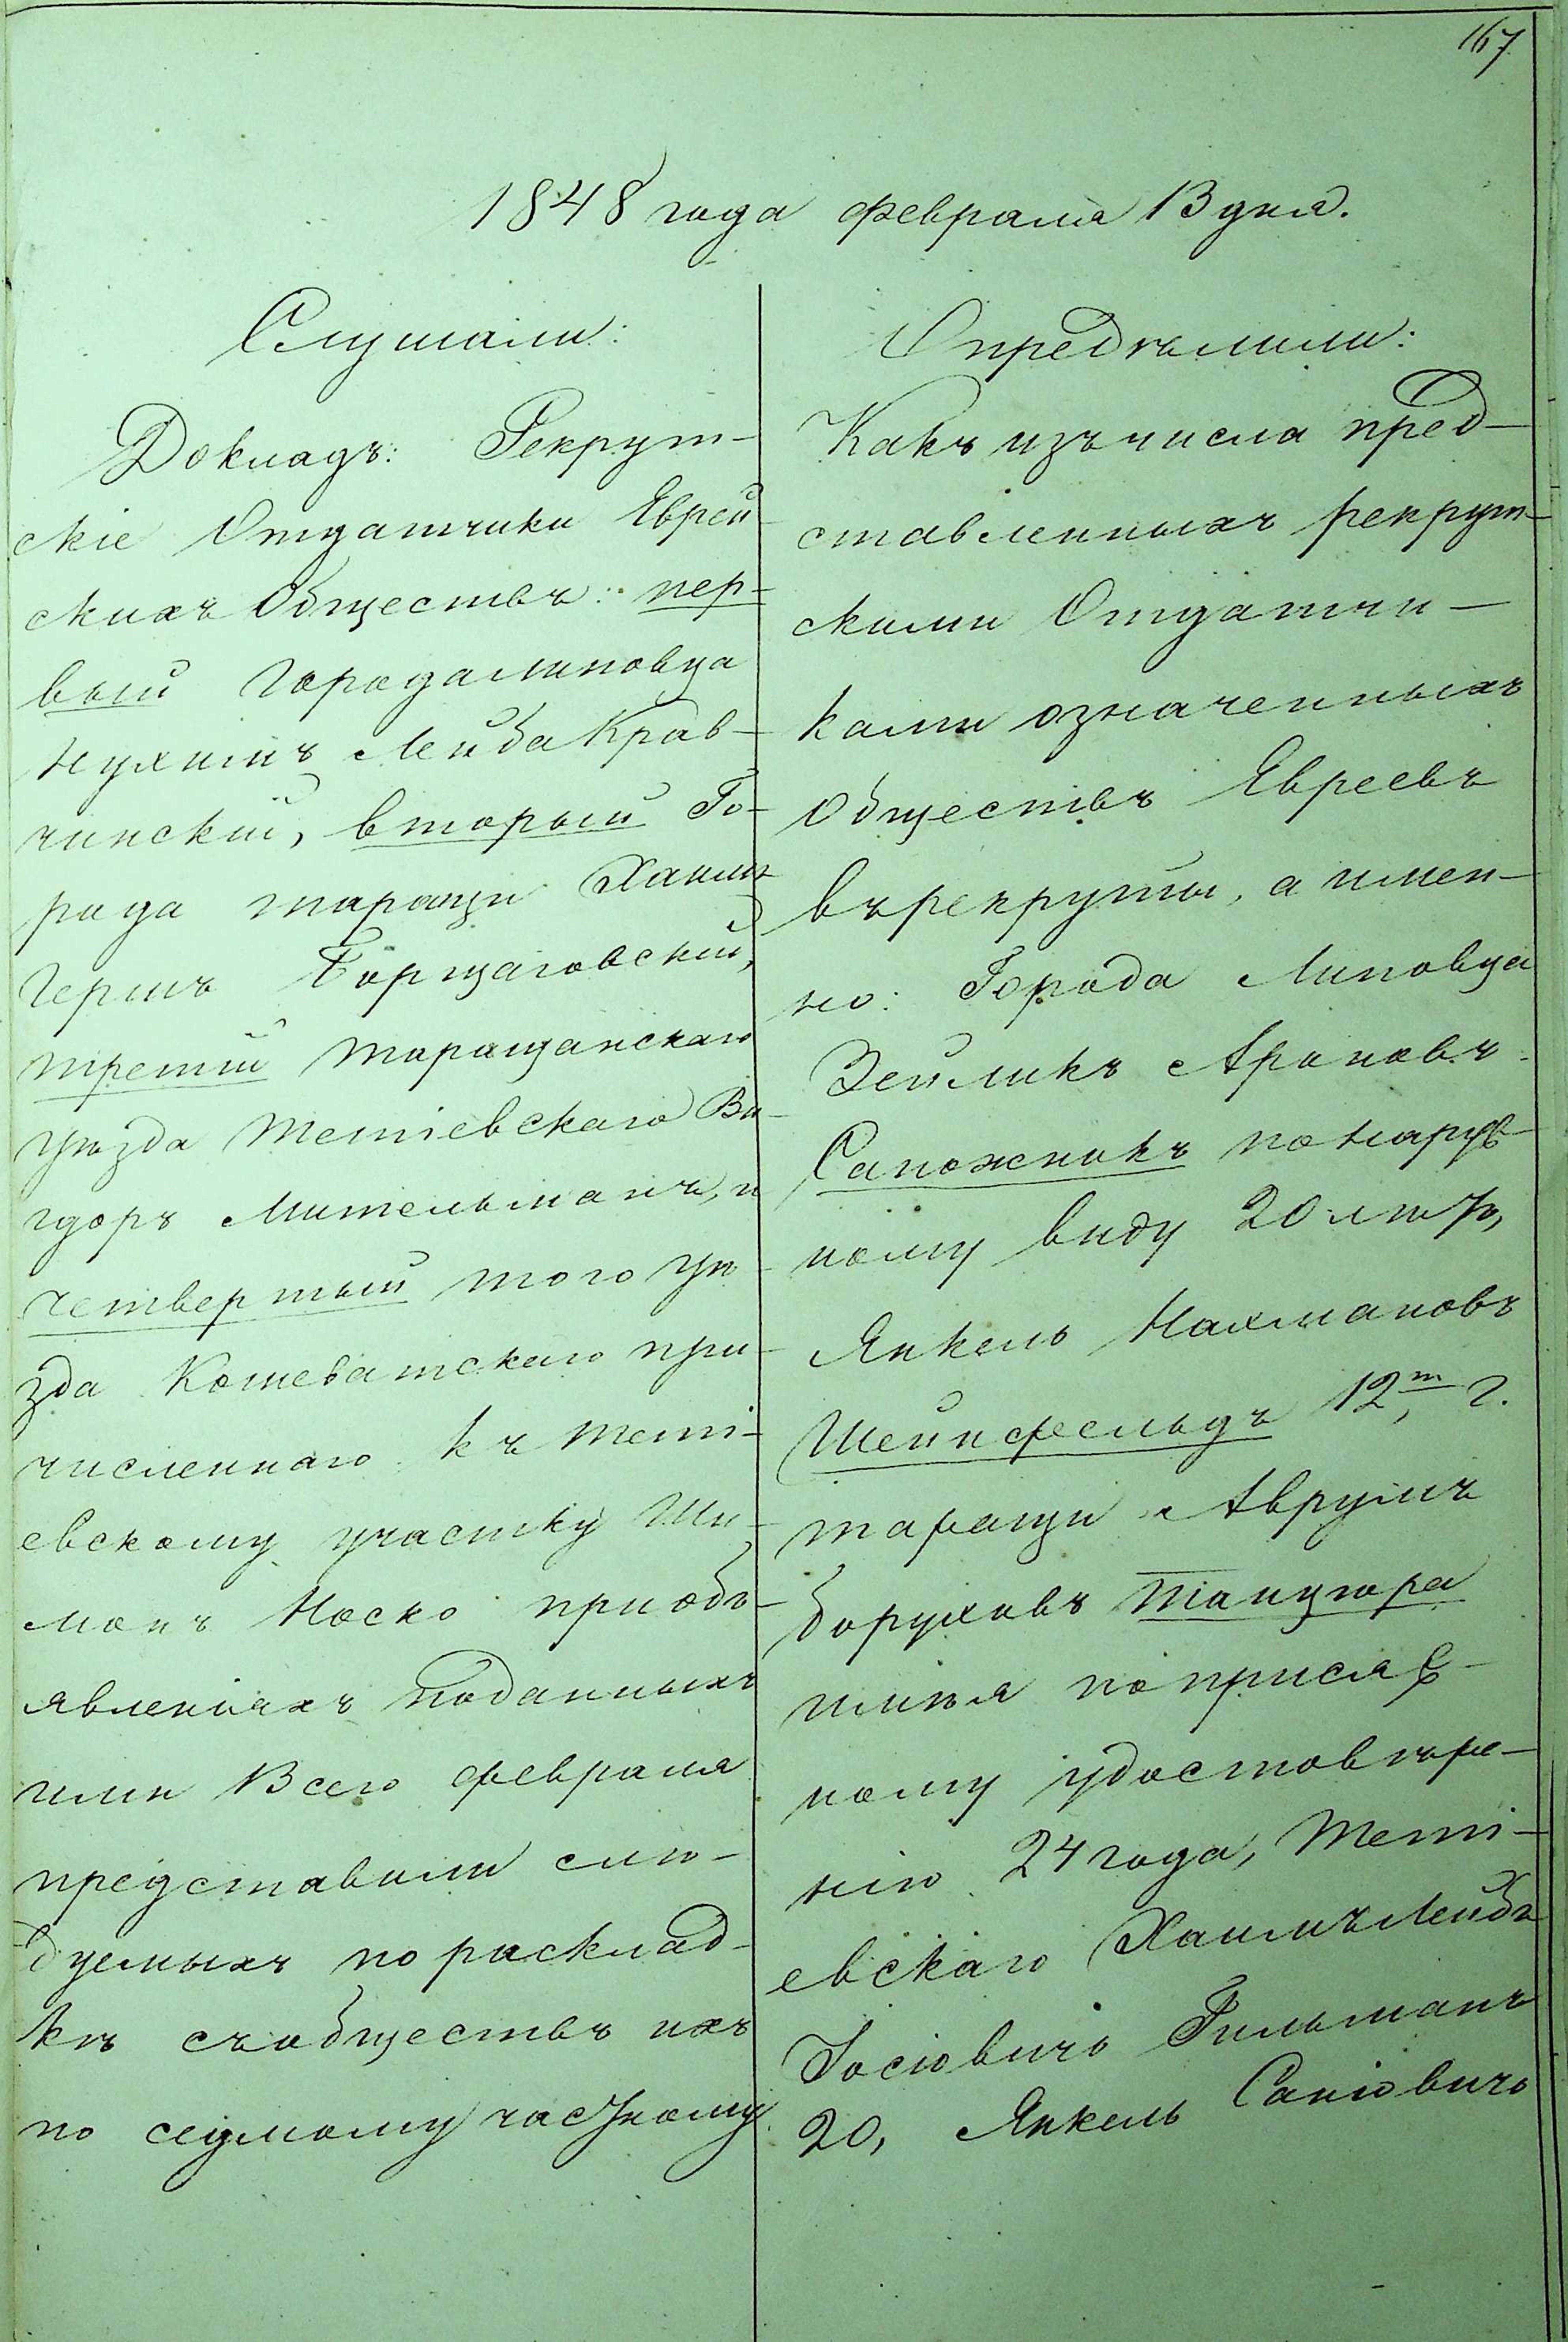 167
1848 года февраля 13 дня.
Слушали:
Докладъ: Рекрут-
скіе Отдатчики Еврей
скихъ Обществъ: пер-
вый города Липовца
Нухимъ Лейба Крав-
чинскій, вторый Го-
рода таращи Хаим
Гершъ Борщаговскій,
третій таращанскаго
уѣзда Тетіевскаго Ви-
гдоръ Мительманъ, и
четвертый того уѣ-
зда Кошеватскаго при-
численнаго къ Теті-
евскому участку Ши-
монъ Носко при объ-
явленіяхъ поданныхъ
ими 13 сего февраля
представили слѣ-
дуемыхъ по расклад-
кѣ съ обществъ ихъ
по седмому частному
Опредѣлили:
Какъ изъ числа пред-
ставленныхъ рекрут-
скими Отдатчи-
ками означенныхъ
Обществъ Евреевъ
въ рекруты, а имен-
но: Города Липовца
Зейликъ Ароновъ
Сапожникъ по наруж-
ному виду 20 лѣтъ,
Янкель Нахмановъ
Шейнфельдъ 12 т г.
таращи Аврумъ
Боруховъ Танцюра
имѣя по присяж-
ному удостовѣре-
нію 24 года, Теті-
евскаго Хаимъ Лейбъ
Іосіовичъ Гильманъ
20, Янкель Саніовичъ